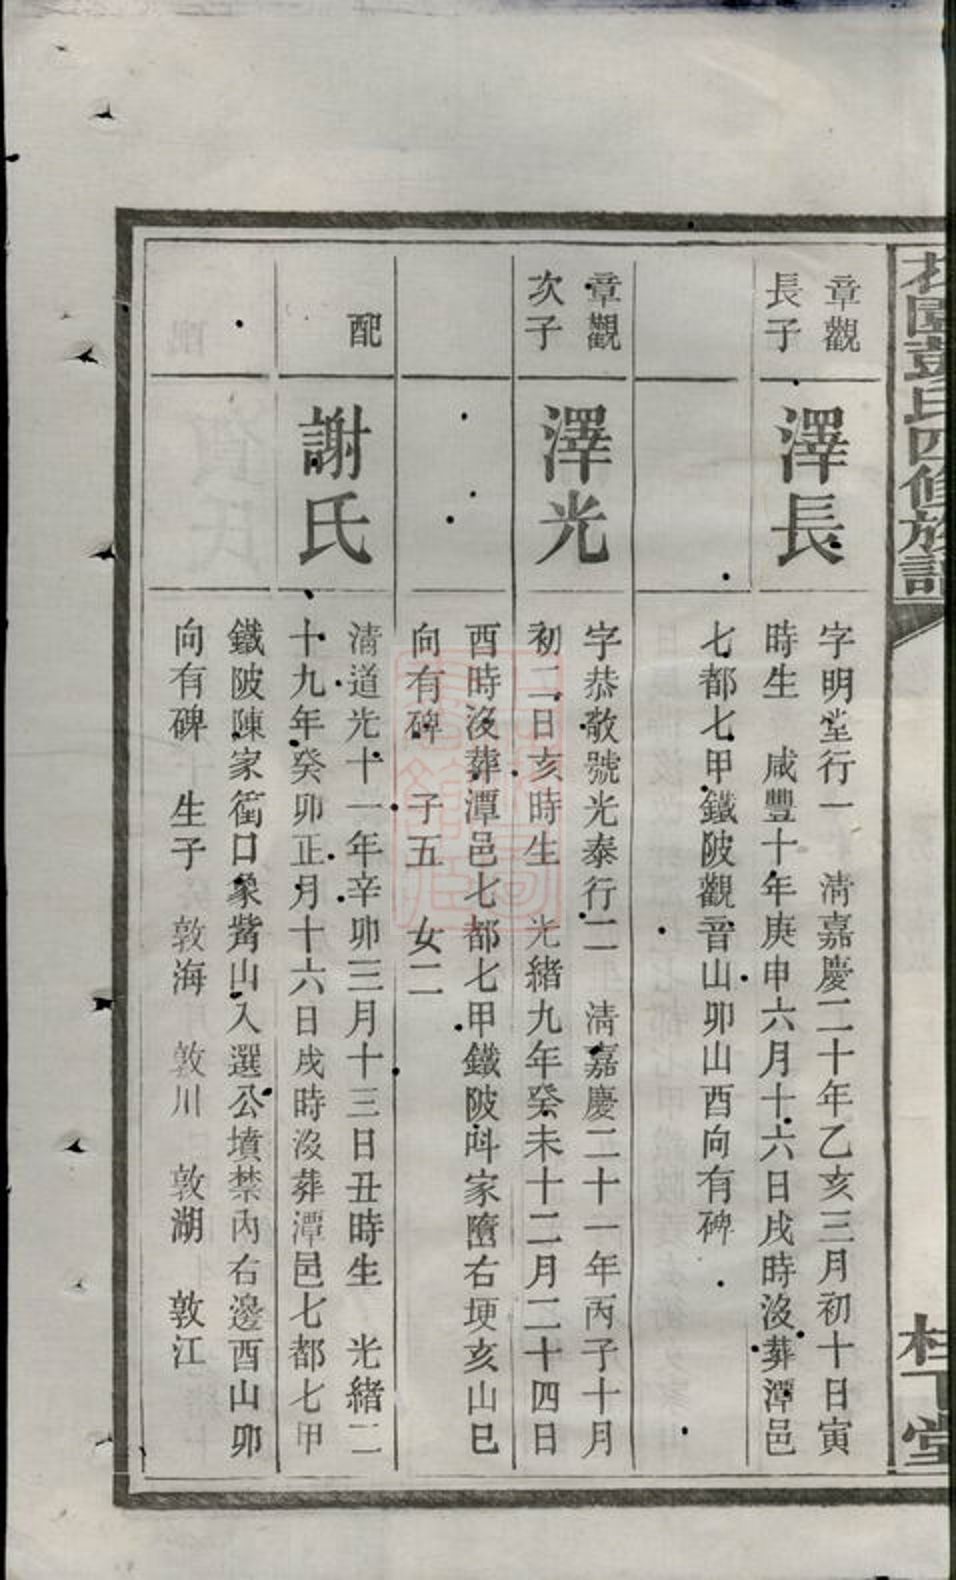 氏四修族譜
章觀
長子
澤長
字明堂行一　清嘉慶二十年乙亥三月初十日寅
時生　咸豐十年庚申六月十六日戌時沒葬潭邑
七都七甲鐵陂觀音山卯山酉向有碑
章觀
次子
澤光
字恭敬號光泰行二　清嘉慶二十一年丙子十月
初二日亥時生　光緒九年癸未十二月二十四日
酉時沒葬潭邑七都七甲鐵陂家右埂亥山巳
向有碑　子五　女二
配
謝氏
清道光十一年辛卯三月十三日丑時生　光緒二
十九年癸卯正月十六日戌時沒葬潭邑七都七甲
鐵陂陳家衝口象觜山入選公墳禁內右邊酉山卯
向有碑　生子　敦海　敦川　敦湖　敦江